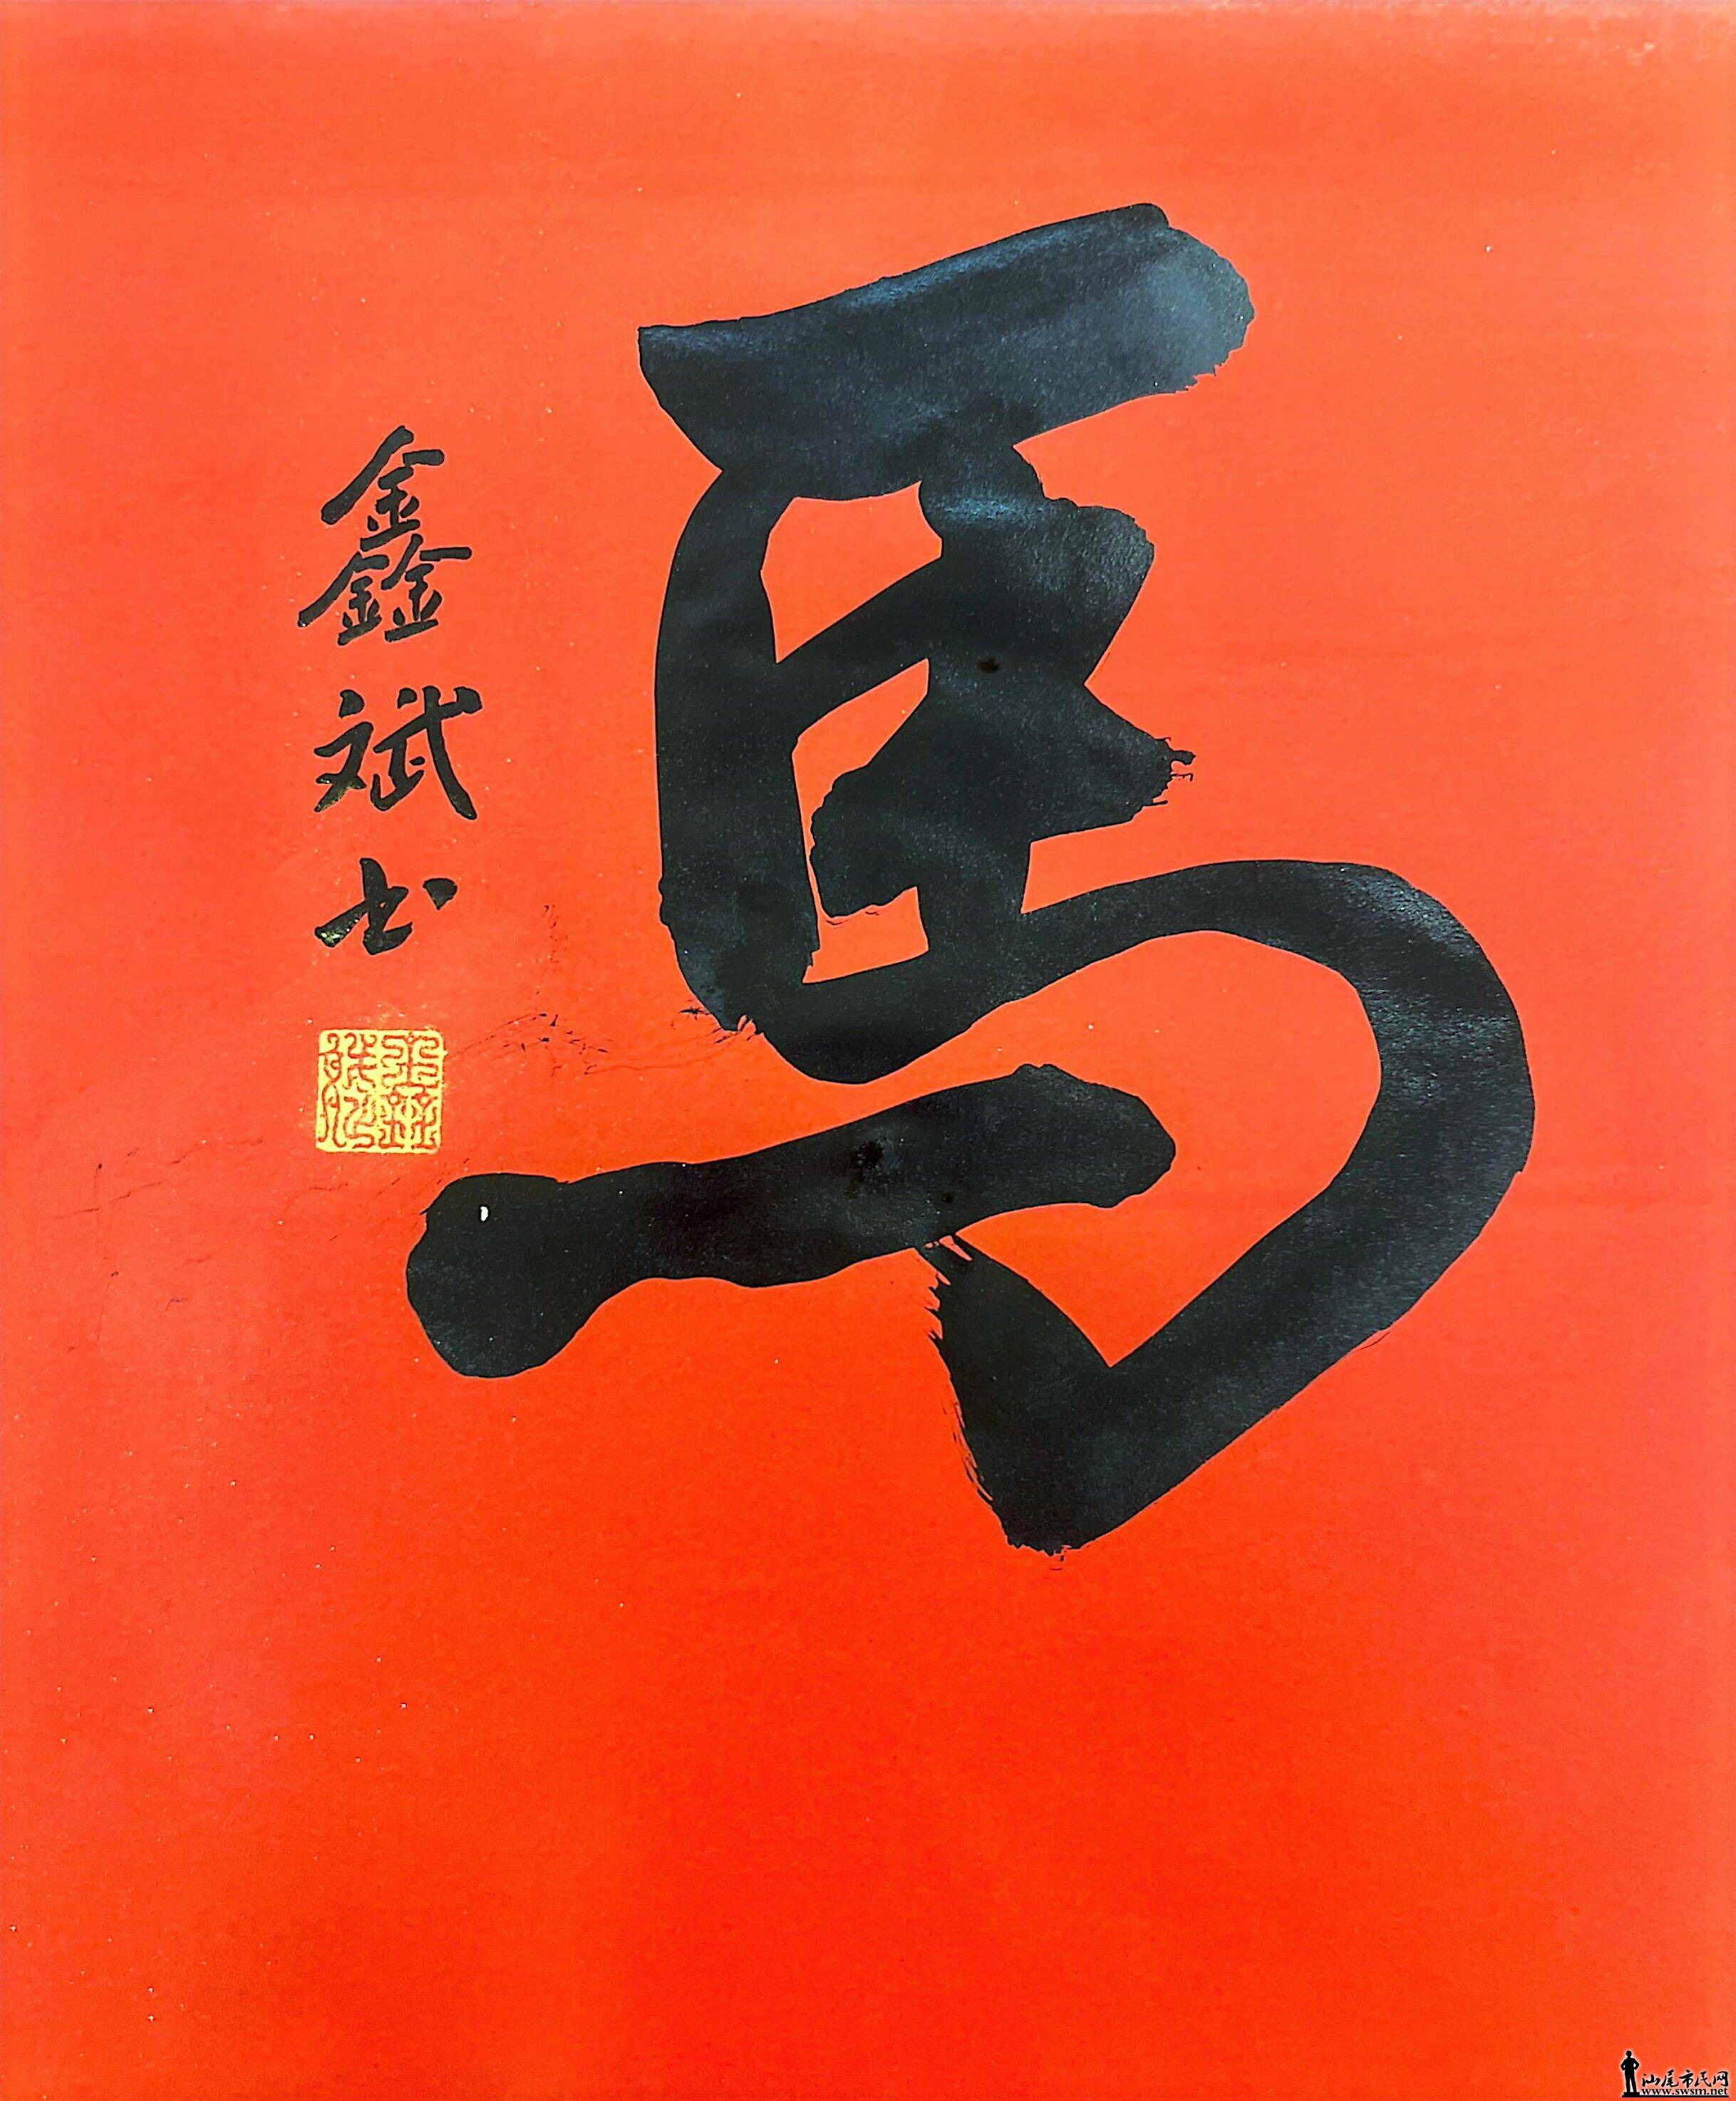 馬
鑫斌书
汕尾市民网
www.swsm.net